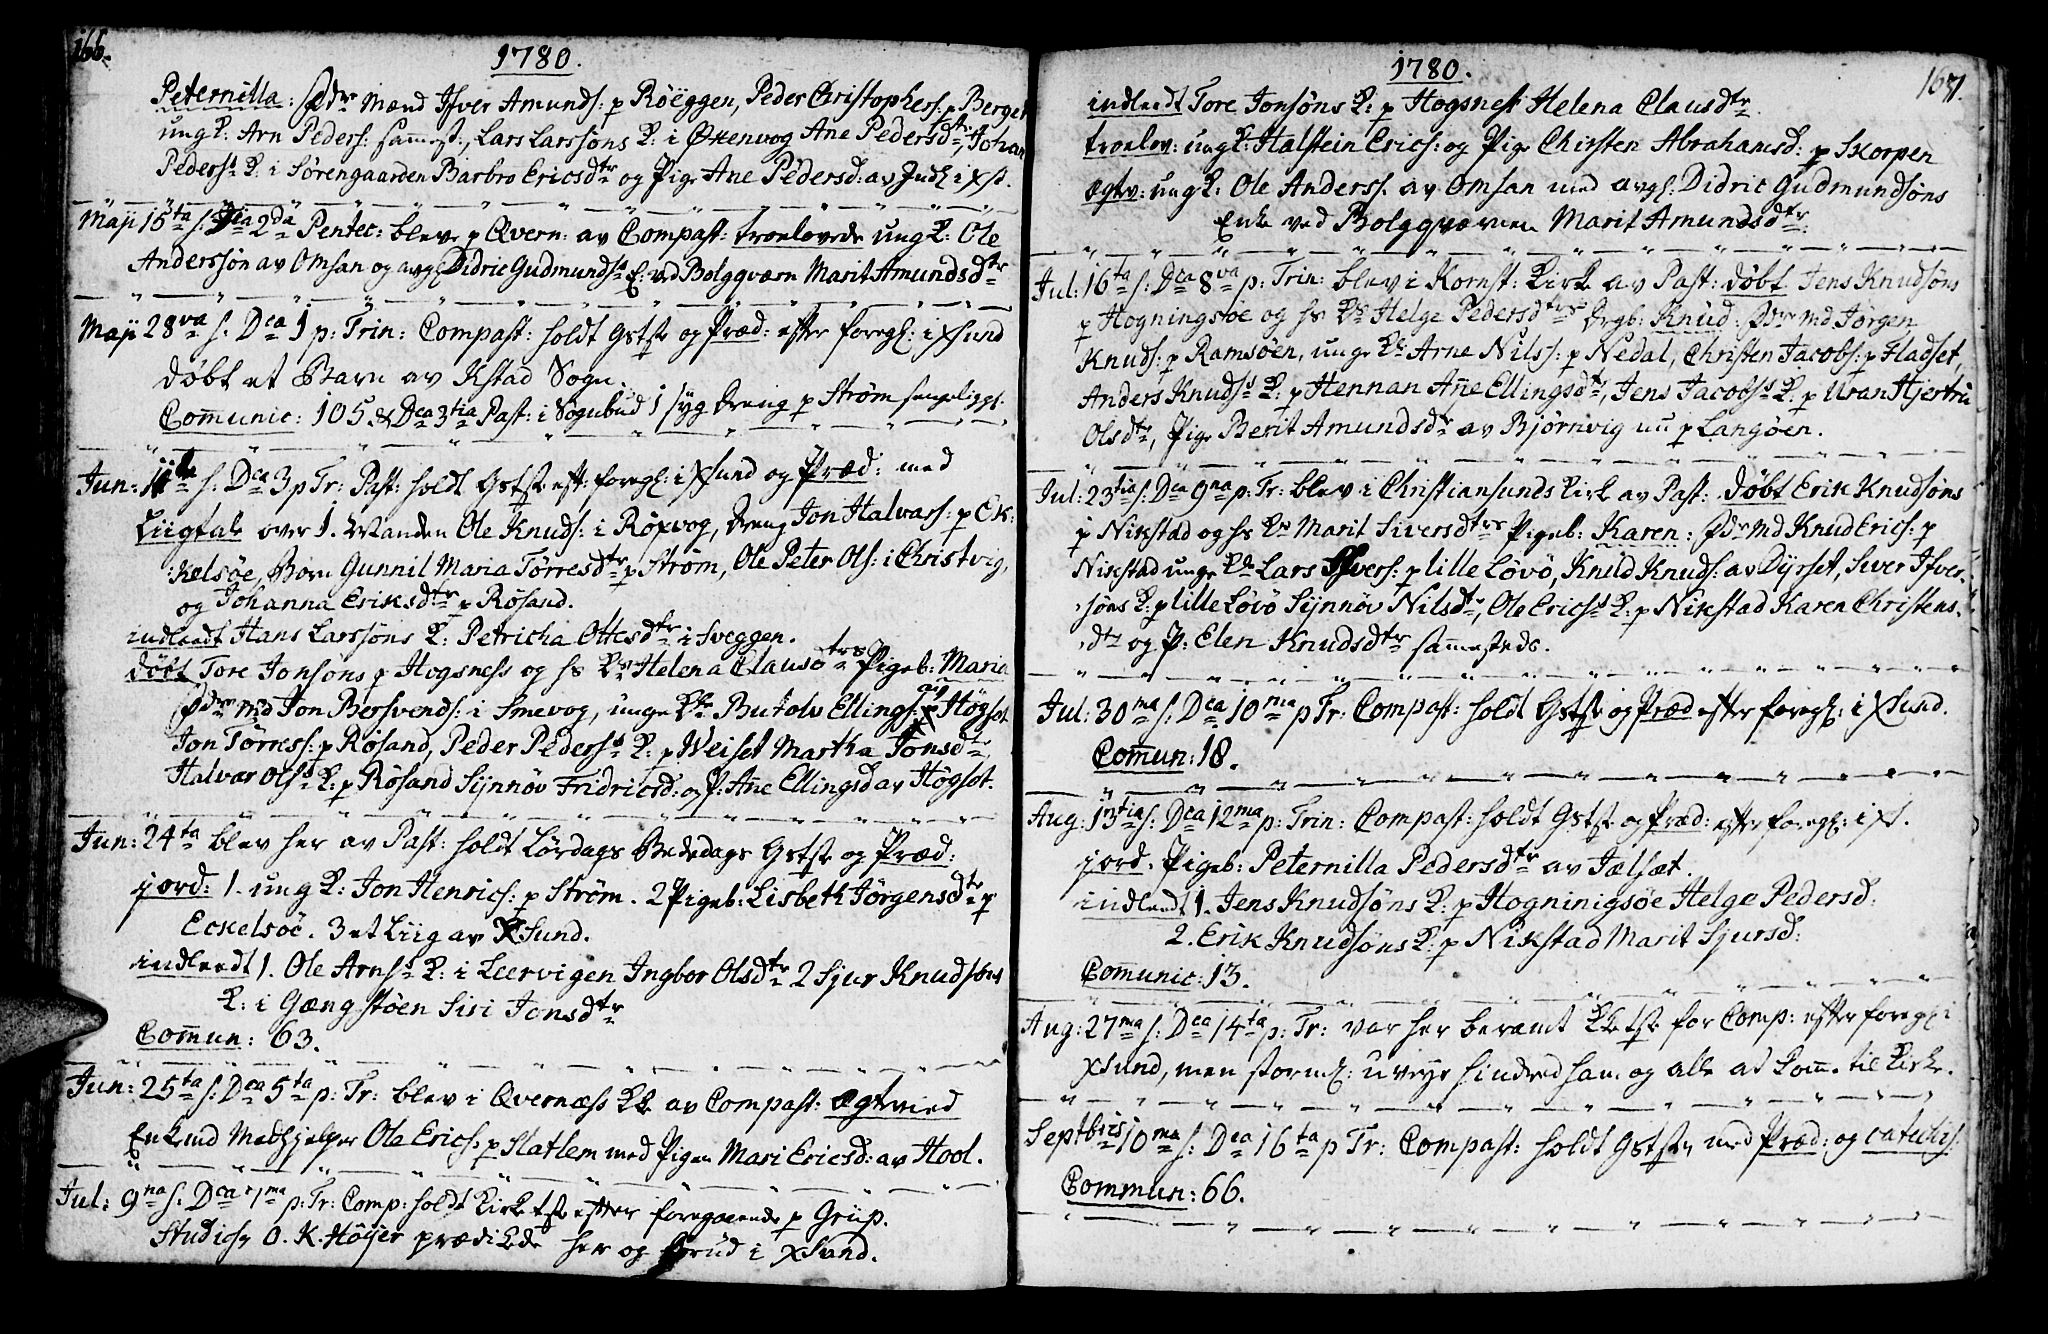 166.
1780.
Peternilla: Fdre Mænd Ifver Amunds: p Röeggen, Peder Christophers: p Berget
ungK: Arn Peders: sammest:, Lars Larssøns K: i Øxenvog Ane Pedersdtr, Johan
Pederss K: i Sørengaarden Barbro Ericsdtr og Pige Ane Pedersd: av i Xst.
Maji 15ta s: Dca 2da Pentec: blev p Qvern: av Compast: troelovede ungK: Ole
Anderssøn av Omsan og avg: Didric Gudmunds: E: ved Bolgqværn Marit Amundsdtr
Maji 28va s: Dca 1 p: Trin: Compast: holdt Gstste og Præd: efter foreg: i XSund
døbt et Barn av Kstad Sogn.
Com̄unic: 105. & Dca 3tia Past: i Sognebud 1 syg Dreng p Strøm sengeligg:
Jun: 11te s: Dca 3 p Tr: Past: holdt Gstste eft: foreg: i XSund og Præd: med
Liigtale over 1. Manden Ole Knuds: i Røxvog, Dreng Jon Halvars: p Ek:
:kelsøe, Børn Gunnil Maria Torresdtr p Strøm, Ole Peter Ols: i Christvig,
og Johanna Eriksdtr p Røsand.
indleedt Hans Larssøns K: Petricha Ottesdtr i Sveggen.
døbt Tore Jonsøns p Hogsness og hs Ks Helena Clausdtrs Pigeb: Maria
Fdre Md Jon Bersvends: i Smevog, unge Kle Butolv Ellings: av Högset
Jon Torress: p Røsand, Peder Pederss K: p Weiset Martha Jonsdtr,
Halvar Olss K: p Røsand Synnöv Fridricsd: og P: Ane Ellingsd av Högset.
Jun: 24ta blev her av Past: holdt Lördags Bededags Gstste og Præd:
jord: 1. ung K: Jon Henrics: p Strøm. 2 Pigeb: Lisbeth Jörgensdtr p
Eckelsöe. 3 et Liig av XSund.
indleedt 1. Ole Arnss K: i Leervigen Ingbor Olsdtr 2 Sjur Knudsøns
K: i Gængstøen Siri Jonsdtr
Com̄un: 63.
Jun: 25ta s: Dca 5ta p: Tr: blev i Qvernæss Kke av Compast: Ægtvied
Enkemd Medhjelper Ole Erics: p Slatlem med Pigen Mari Ericsd: av Hool.
Jul: 9na s: Dca 7ma p: Tr: Comp: holdt Kirketste efter foregaaende p Grip.
Studios9 O. K. Höyer prædikede her og forud i XSund.
167.
1780.
indleedt Tore Jonsøns K: p Hogsnest Helena Clausdtr
troelov: ungK: Halstein Erics: og Pige Chirsten Abrahamsd: p Skorpen
Ægtv: ungK: Ole Anders: av Omsan med avg: Didric Gudmundsøns
Enke ved Bolgqværnen Marit Amundsdtr.
Jul: 16ta s: Dca 8va p: Trin: blev i Kornst: Kirke av Past: døbt Jens Knudsøns
p Hogningsøe og hs Ks Helge Pedersdtrs Drgb: Knud: Fdre Md Jørgen
Knuds: p Ramsøen, unge Kle Arne Nils: p Nedal, Christen Jacobs: p Fladset,
Anders Knudss K: p Hennan An̄e Ellingsdtr, Jens Jacobss K: p Uran Hjertru
Olsdtr, Pige Berit Amundsdtr av Bjørnvig nu p Langøen.
Jul: 23tia s: Dca 9na p: Tr: blev i Christiansunds Kirk av Past: døbt Erik Knudsøns
p Nikstad og hs Ks Marit Siversdtrs Pigeb: Karen: Fdre Md Knud Erics: p
Nikstad unge Kle Lars Ifvers: p lille Løvö, Knud Knuds: av Dyrset, Siver Ifver-
:søns K: p lille Løvö Synnöv Nilsdtr, Ole Ericss K: p Nikstad Karen Christens:
:dtr og P: Elen Knudsdtr sam̄esteds.
Jul: 30ma s: Dca 10ma p Tr: Compast: holdt Gstste og Præd efter foreg: i XSund.
Com̄un: 18.
Aug: 13tia s: Dca 12ma p: Trin: Compast: holdt Gstste og Præd: efter foreg: i XS.
jord. Pigeb: Peternilla Pedersdtr av Jælsæt.
indleedt 1. Jens Knudsøns K: p Hogninigsøe Helge Pedersd:
2. Erik Knudsøns K: p Nikstad Marit Sjursd:
Com̄unic: 13.
Aug: 27ma s: Dca 14ta p: Tr: var her beramt Kketste for Comp: efter foreg: i
XSund, men storm: uveyr hindred ham og alle at kom̄e til Kirke.
Septbris 10ma s: Dca 16ta p Tr: Compast: holdt Gstste med Præd: og catechis:
Commun: 66.